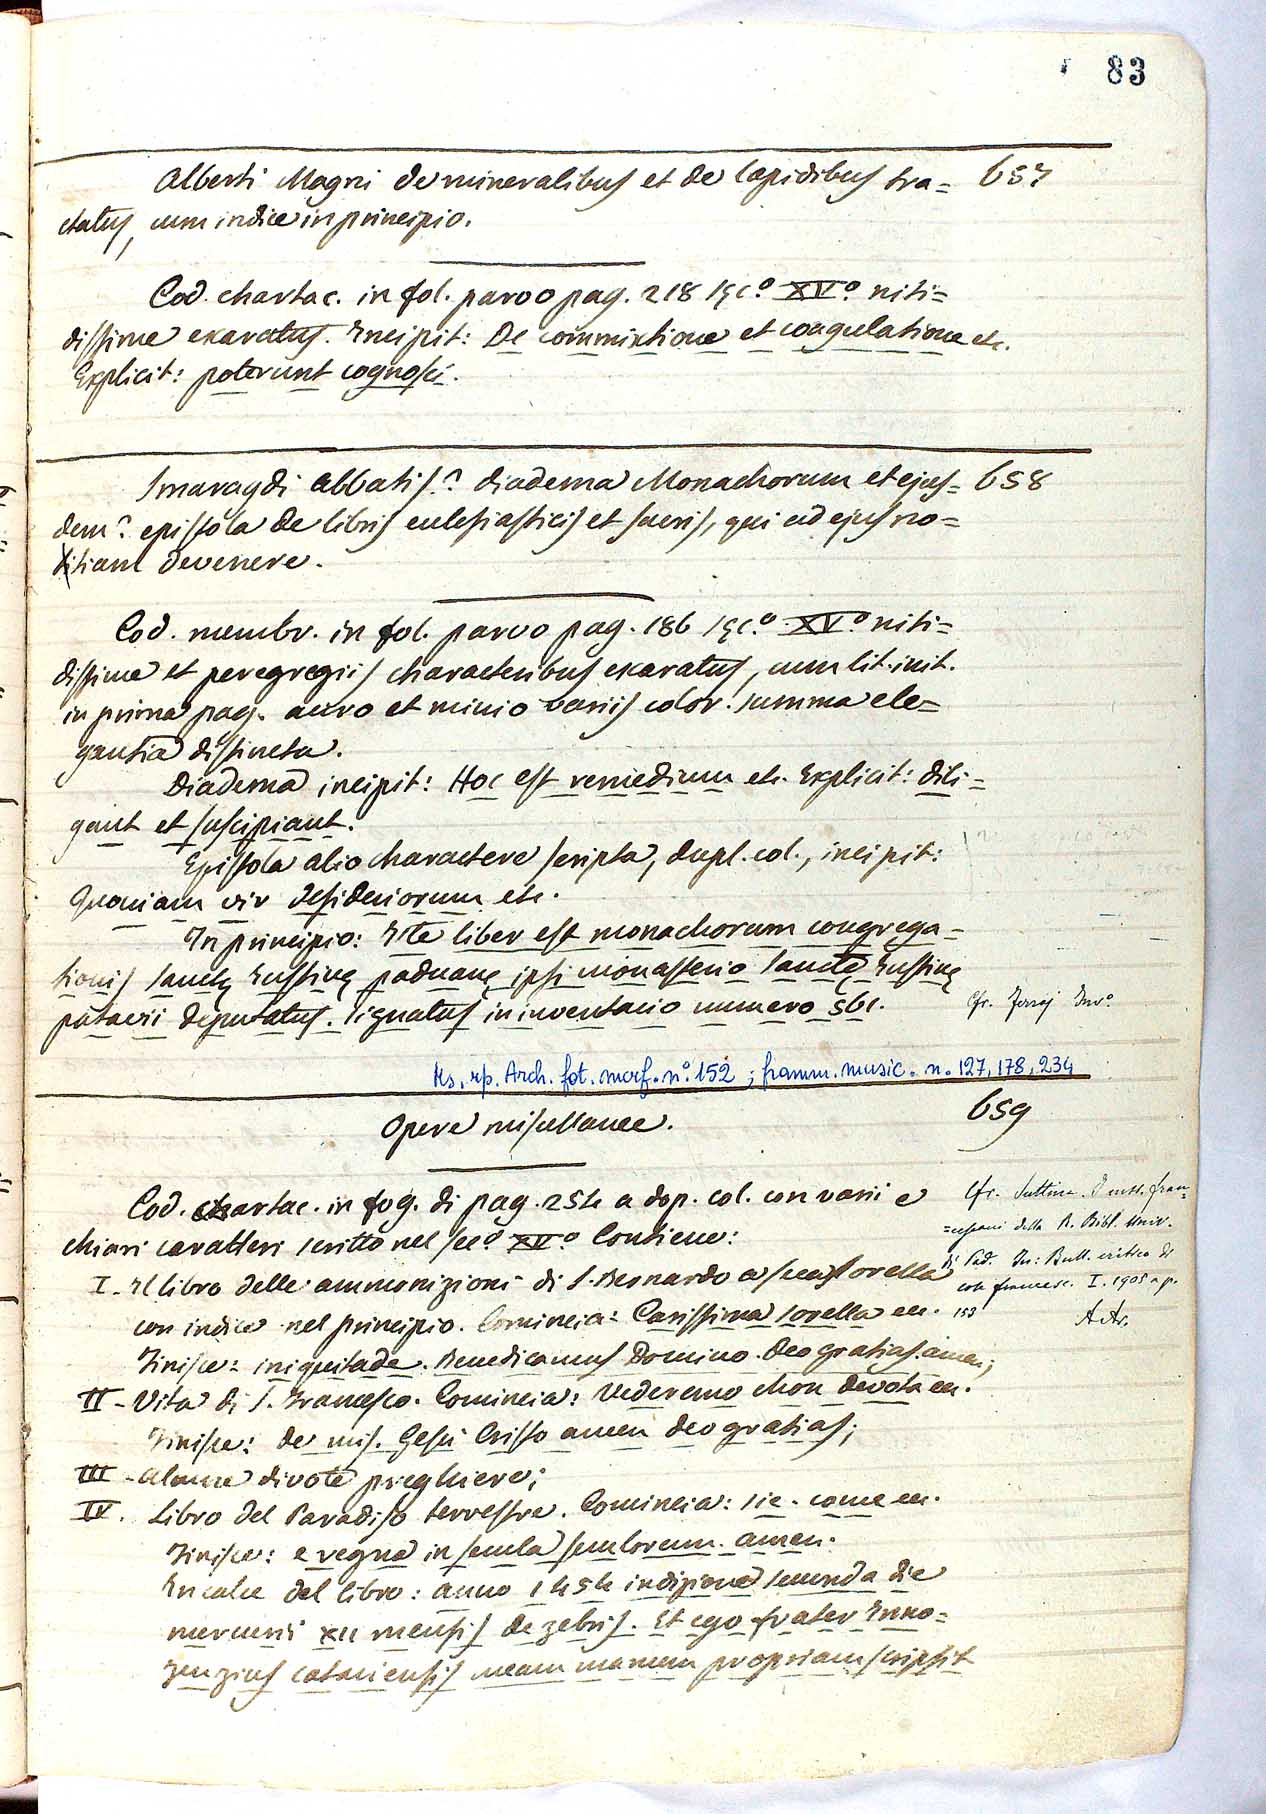 83
Alberti Magni de mineralibus et de lapidibus tra= 657
ctatus, cum indice in principio.
Cod. chartac. in fol. parvo pag. 218 sęc.º XVº niti=
dissime exaratus. Incipit: De commixtione et coagulatione etc.
Explicit: poterunt cognosci.
Smaragdi Abbatis? diadema Monachorum et ejus= 658
dem? epistola de libris eclesiasticis et sacris, qui ad ejus no=
titiam devenere.
Cod. membr. in fol. parvo pag. 186 sęc.º XVº niti=
dissime et peregregiis characteribus exaratus, cum lit. init.
in prima pag. auro et minio variis color. summa ele=
gantia distincta.
Diadema incipit: Hoc est remedium etc. Explicit: dili=
gant et suscipiant.
Epistola alio charactere scripta, dupl. col., incipit:
Quoniam vir desideriorum etc.
In principio: Iste liber est monachorum congrega=
tionis sanctę Iustinę paduanę ipsi monasterio sanctę Iustinę
patavii deputatus. Signatus in inventario numero 561.
Cfr. Inv.º
Ms. rip. Arch. fot. morf. n.º 152; framm. music. n. 127, 178, 234
Opere miscellanee. 659
Cod. chartac. in fog. di pag. 254 a dop. col. con varii e
chiari caratteri scritto nel sec.º XVº Contiene:
I - Il libro delle ammonizioni di S. Bernardo a sua sorella
con indice nel principio. Comincia: Carissima sorella ec.
Finisce: iniquitade. Benedicamus Domino. Deo gratias. amen;
II - Vita di S. Francesco. Comincia: Vederemo chon devota ec.
Finisce: de mis. Gesù Cristo amen deo gratias;
III - Alcune divote preghiere;
IV. Libro del Paradiso terrestre. Comincia: sie. come ec.
Finisce: e regna in secula seculorum. amen.
In calce del libro: anno 1454 indizione secunda die
mercurii XII mensis dezebris. Et ego frater Inno=
zenzius cataniensis meam manum propriam scripsit
Cfr. Suttina. I mss. fran=
=cescani della R. Bibl. Univ.
di Pad. In: Bull. critico di
cose francesc. I. 1905 a p.
153